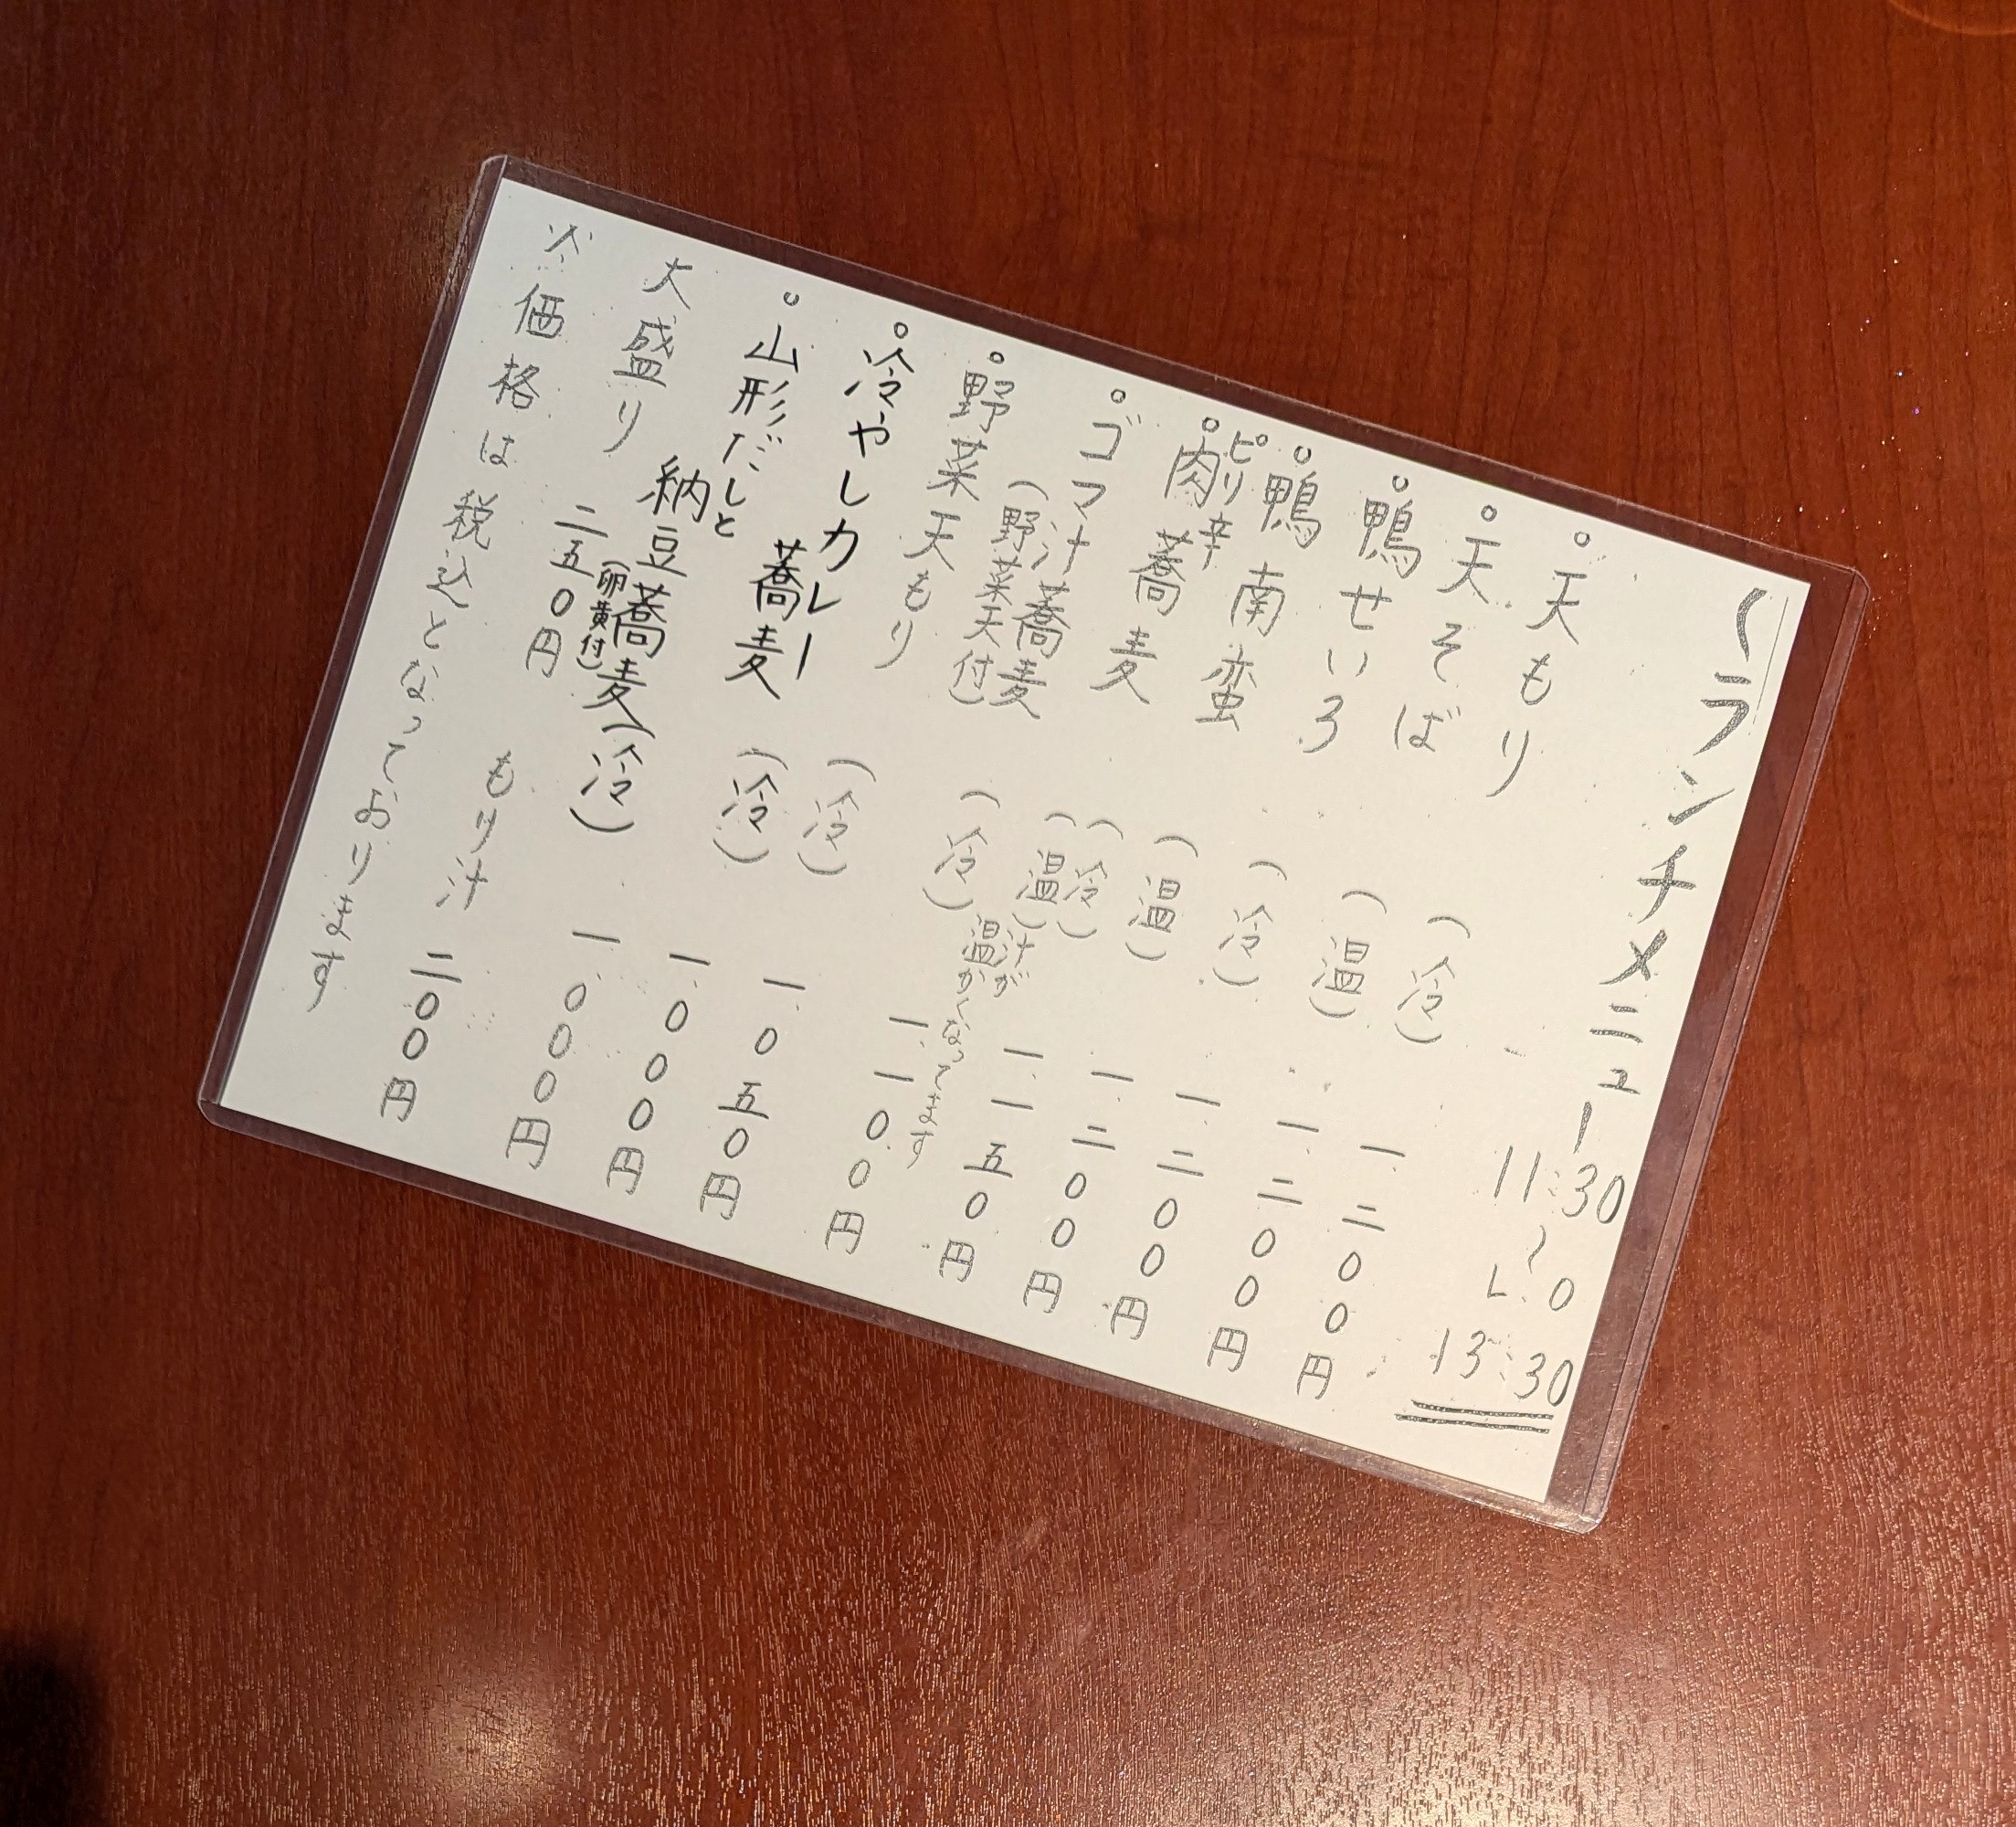 〈ランチメニュー 11:30〜L.O 13:30
○天もり (冷) 一、二〇〇円
○天そば (温) 一、二〇〇円
○鴨せいろ (冷) 一、二〇〇円
○鴨南蛮 (温) 一、二〇〇円
○ピリ辛肉蕎麦 (冷)(温) 一、一五〇円
○ゴマ汁蕎麦 (冷) 汁が温かくなってます 一、一〇〇円
(野菜天付)
○野菜天もり (冷) 一、〇五〇円
○冷やしカレー蕎麦 (冷) 一、〇〇〇円
○山形だしと納豆蕎麦 (冷) 一、〇〇〇円
(卵黄付)
大盛り 二五〇円 もり汁 二〇〇円
※価格は税込となっております